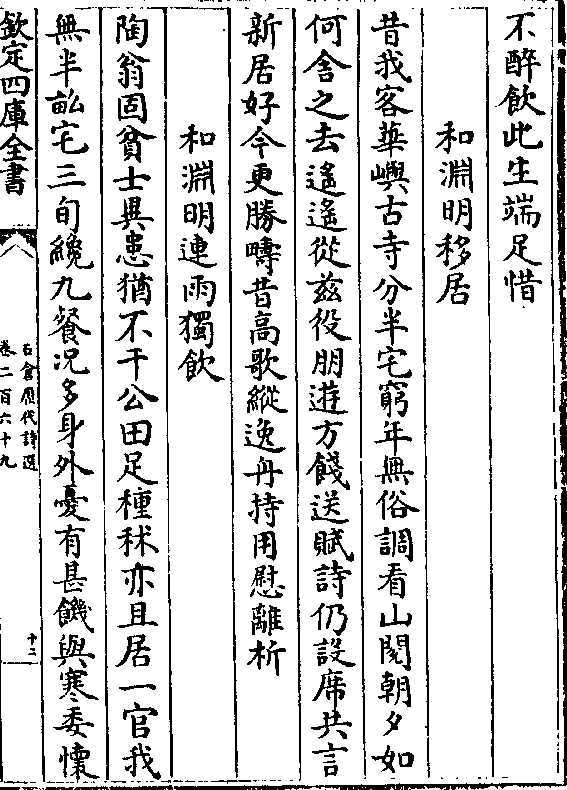 不醉飲此生端足惜
和淵明移居
昔我客華嶼古寺分半宅窮年無俗調看山閱朝夕如
何舍之去遙遙從兹役朋遊方餞送賦詩仍設席共言
新居好今更勝疇昔高歌縱逸舟持用慰離析
和淵明連雨獨飲
陶翁固貧士異患猶不干公田足種秫亦且居一官我
無半畝宅三旬纔九餐况多身外憂有甚饑與寒委懷
欽定四庫全書
石倉歷代詩選
卷二百六十九
十二